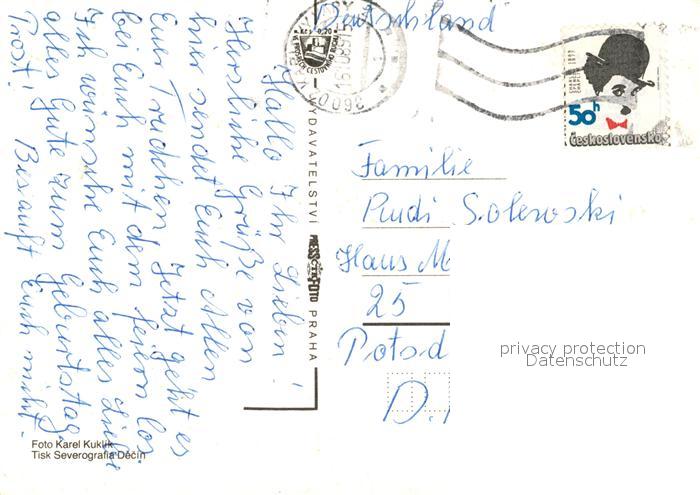 Hallo Ihr Lieben!
Herzliche Grüße von
hier sendet Euch Allen
Euer Trudchen. Jetzt geht es
bei Euch mit dem feiern los.
Ich wünsche Euch alles Liebe
alles Gute zum Geburtstag.
Prost! Besauft Euch nicht.
Foto Karel Kuklík
Tisk Severografia Děčín
VYDAVATELSTVÍ PRESSFOTO PRAHA
Deutschland
50h
Československo
Familie
Rudi Solewski
Haus M
25
Potsd
D.
privacy protection
Datenschutz